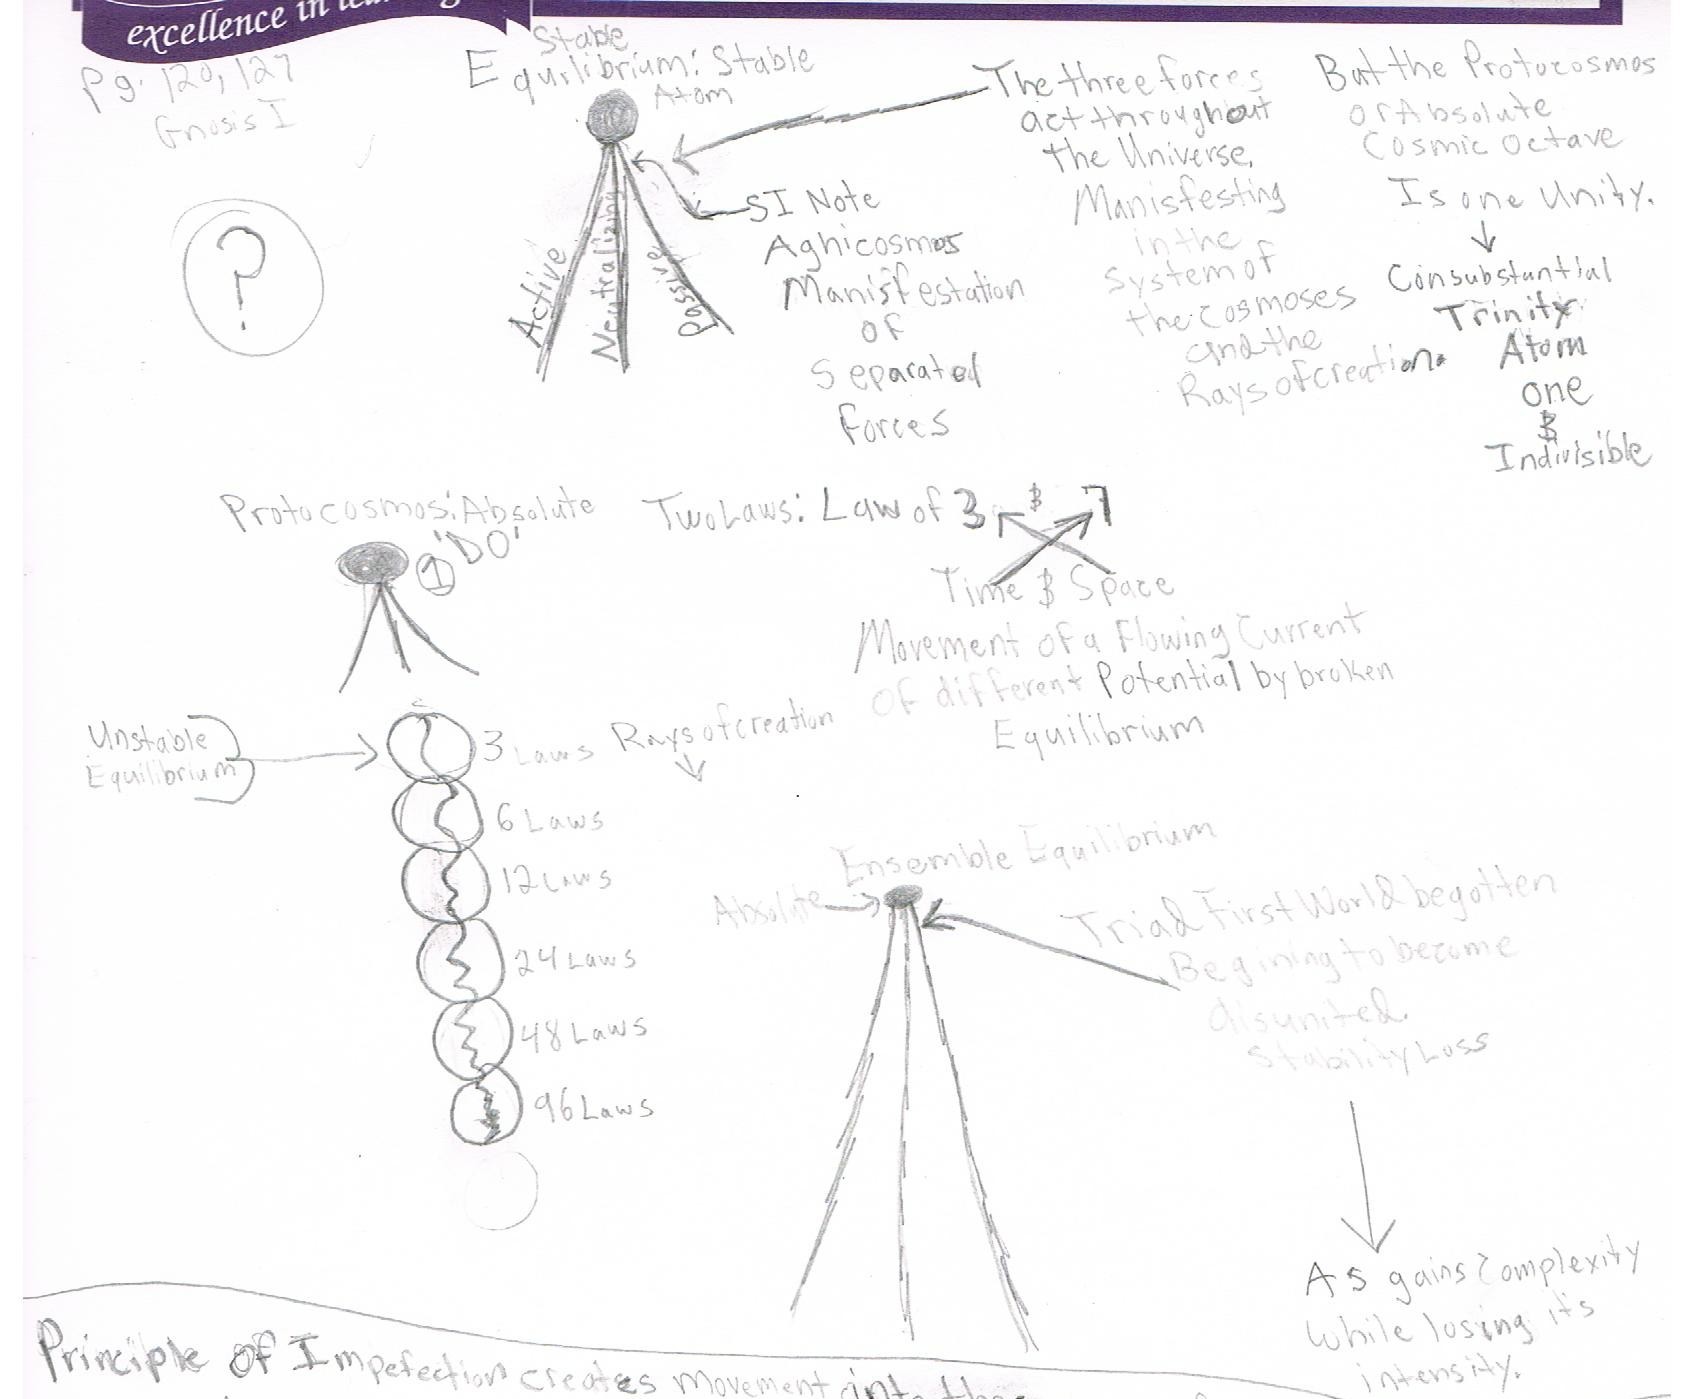 excellence in
Pg. 120, 127
Gnosis I
?
Stable
Equilibrium: Stable
Atom
Active
Neutralizing
Passive
SI Note
Aghicosmos
Manisfestation
of
Separated
forces
The three forces
act throughout
the Universe,
Manisfesting
in the
System of
the cosmoses
and the
Rays of creation.
But the Protocosmos
or Absolute
Cosmic Octave
Is one Unity.
Consubstantial
Trinity:
Atom
one
&
Indivisible
Protocosmos: Absolute
1 'DO'
Two Laws: Law of 3 & 7
Time & Space
Movement of a Flowing Current
Of different Potential by broken
Equilibrium
Unstable
Equilibrium
3 Laws
6 Laws
12 Laws
24 Laws
48 Laws
96 Laws
Rays of creation
Ensemble Equilibrium
Absolute
Triad First World begotten
Begining to become
disunited.
Stability Loss
As gains complexity
while losing it's
intensity.
Principle of Impefection creates movement into